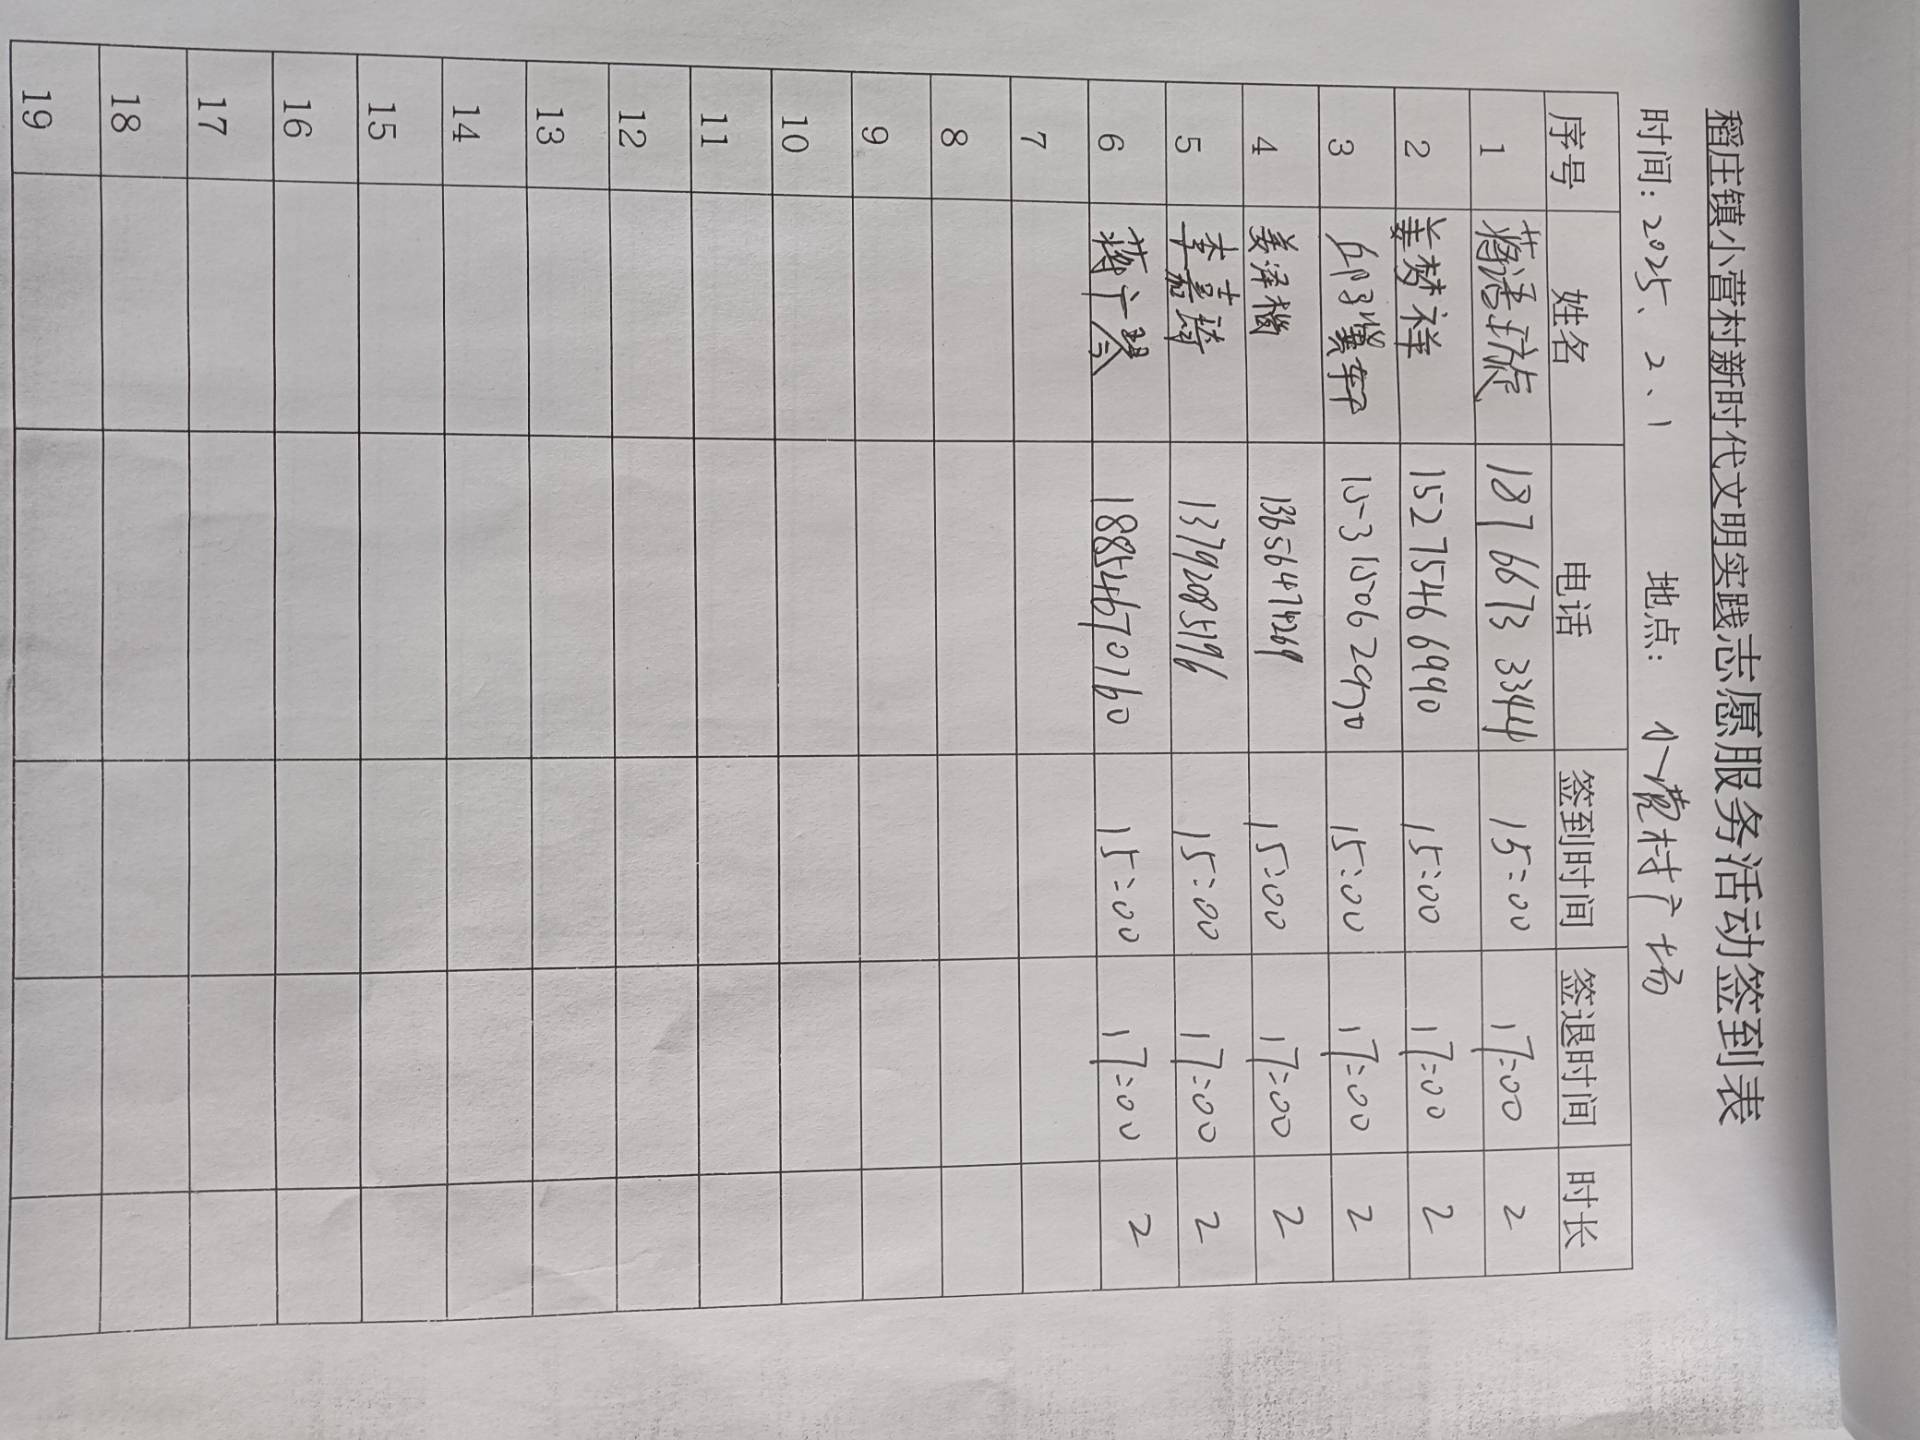 稻庄镇小营村新时代文明实践志愿服务活动签到表
时间：2025、2、1 地点：小营村广场
序号 姓名 电话 签到时间 签退时间 时长
1 187 6673 3344 15:00 17:00 2
2 姜梦祥 152 7546 6990 15:00 17:00 2
3 15:00 17:00 2
4 15:00 17:00 2
5 李嘉琦 13792085196 15:00 17:00 2
6 18854670760 15:00 17:00 2
7
8
9
10
11
12
13
14
15
16
17
18
19